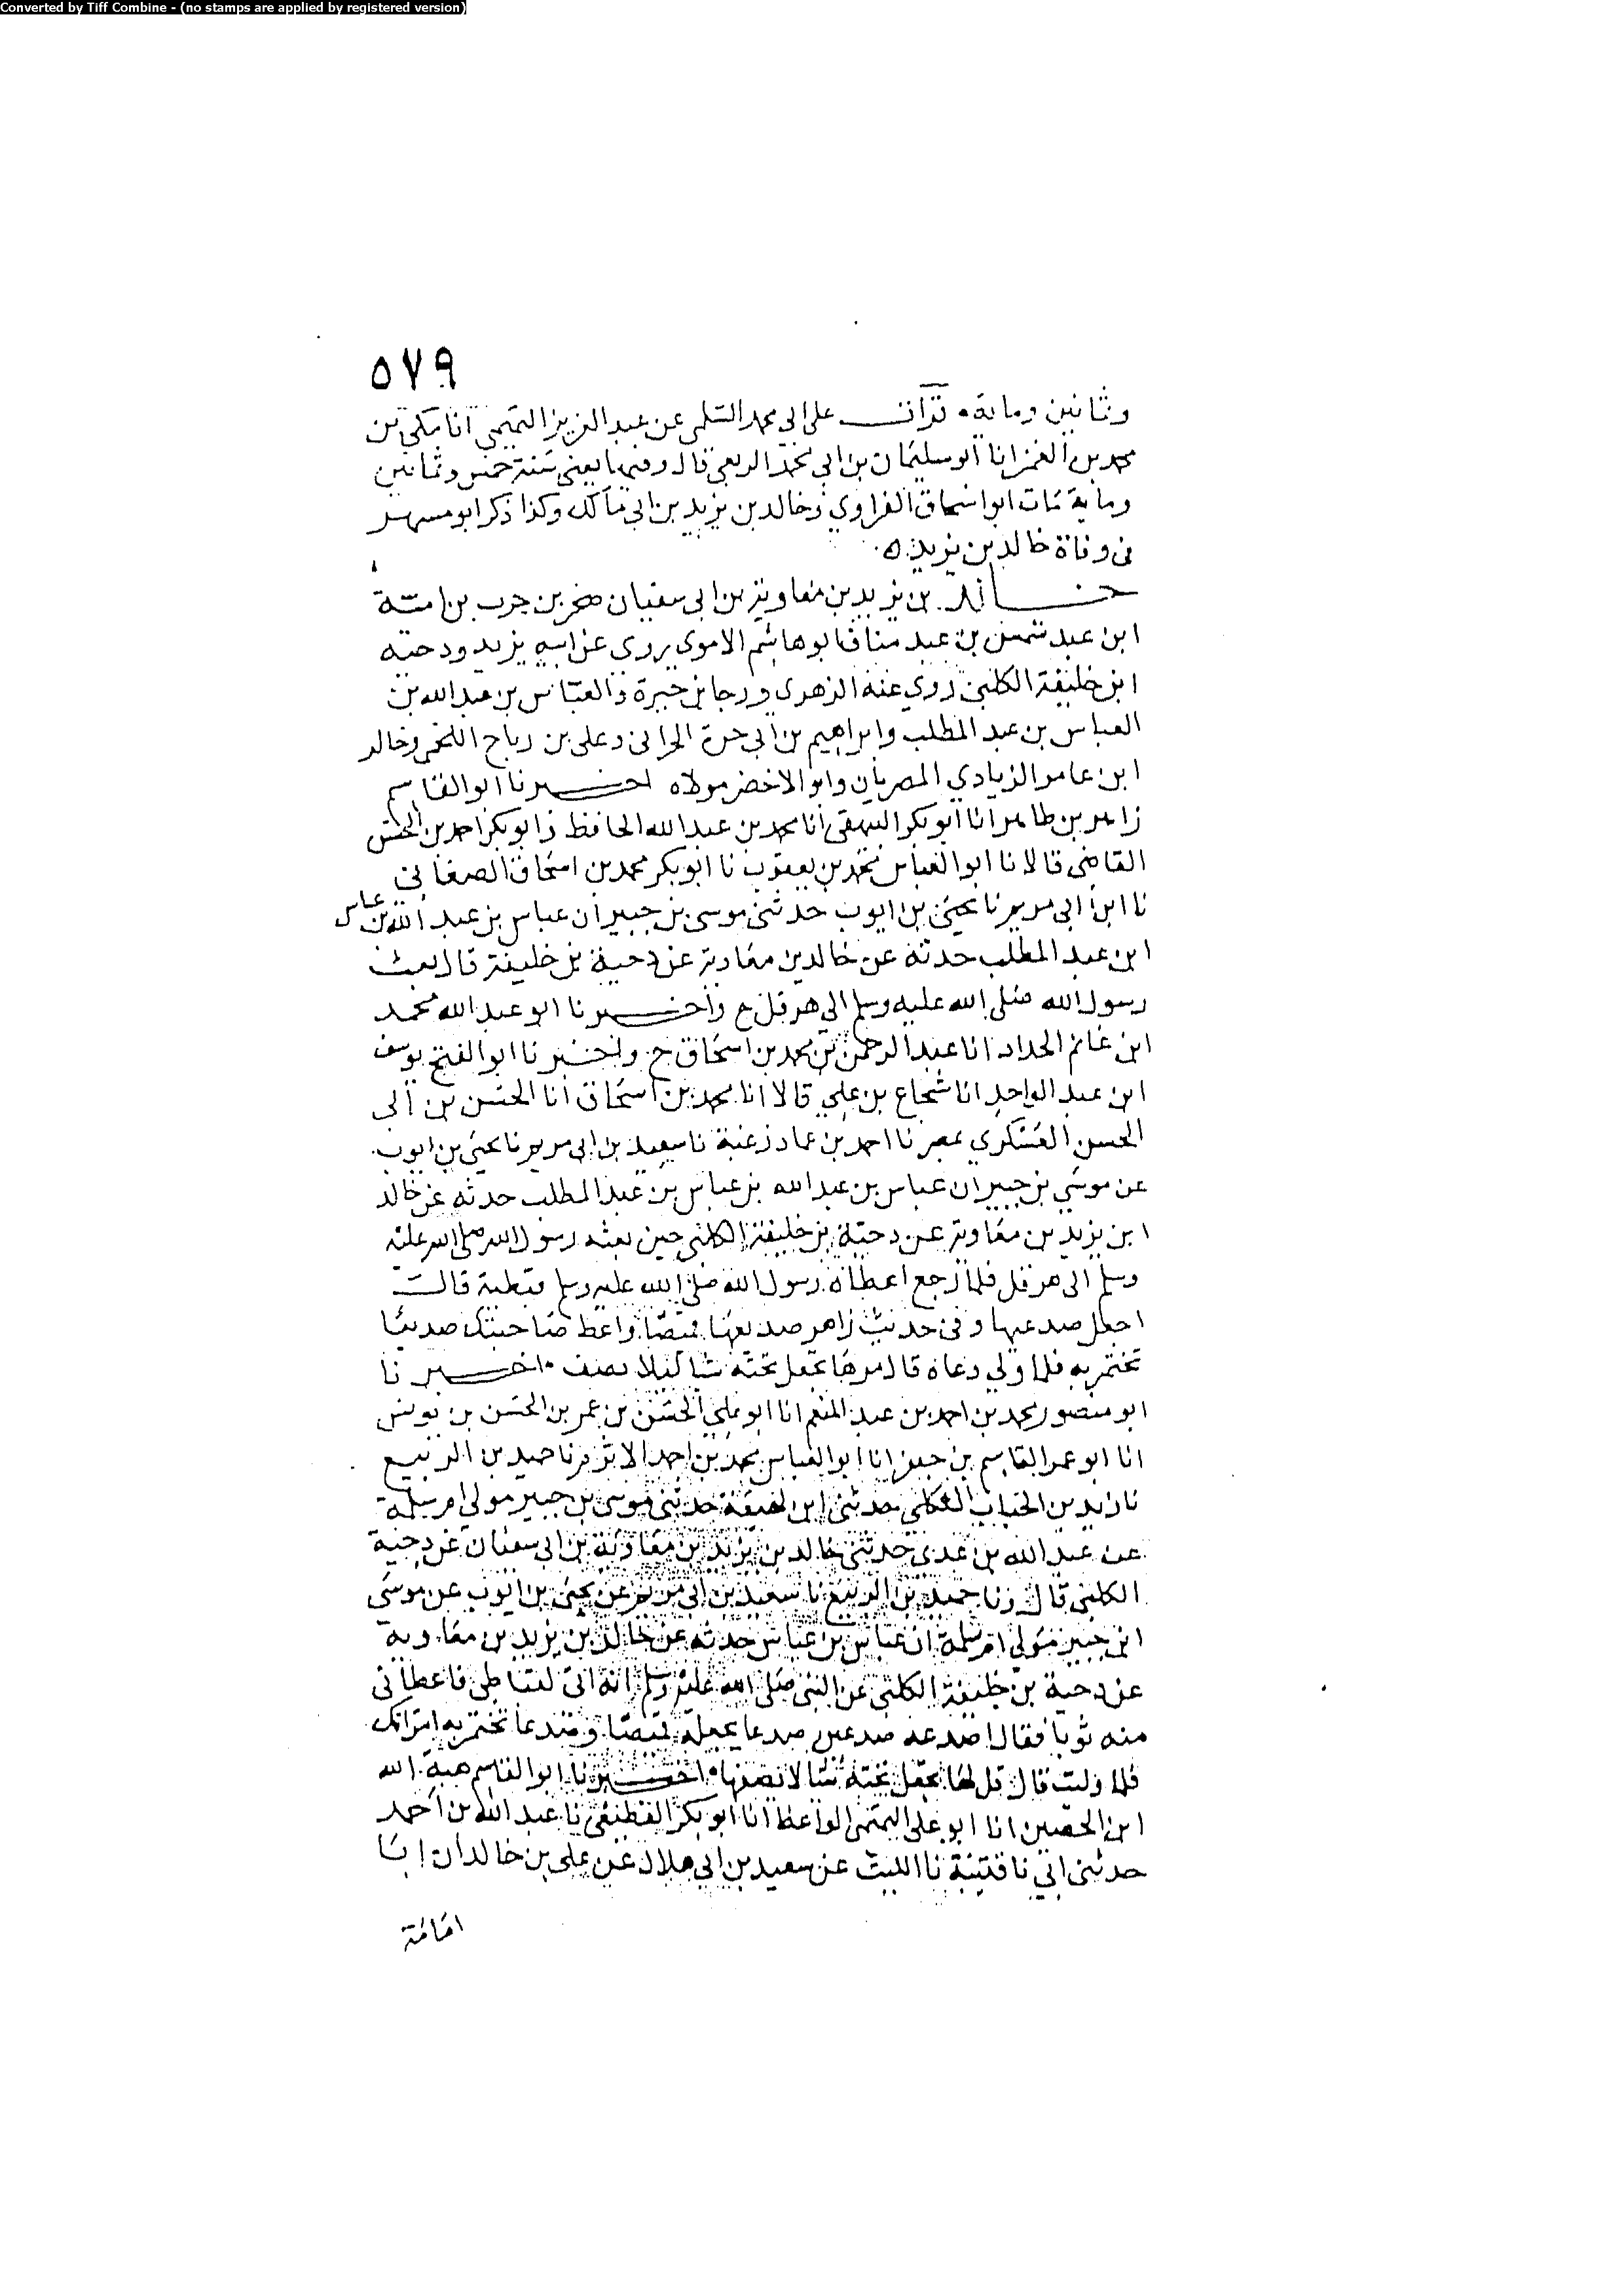 Converted by Tiff Combine - (no stamps are applied by registered version)
٥٧٩
وثمانين وماية ٠ قرأت على ابي محمد السلمى عن عبد العزيز التميمي انا مكي بن
محمد بن الغمر انا ابو سليمان بن ابي محمد الربعي قال وفيها يعني سنة خمس وثمانين
وماية مات ابو اسحاق الفزاوي وخالد بن يزيد بن ابي مالك وكذا ذكر ابو مسهر
في وفاة خالد بن يزيد ٥
خالد بن يزيد بن معاوية بن ابي سفيان صخر بن حرب بن امية
ابن عبد شمس بن عبد مناف ابو هاشم الاموي يروي عن ابيه يزيد ودحية
ابن خليفة الكلبي روي عنه الزهري ورجا بن حيوة والعباس بن عبد الله بن
العباس بن عبد المطلب وابراهيم بن ابي حرة الحراني وعلى بن رباح اللخمي وخالد
ابن عامر الزيادي المصريان وابو الاخضر مولاه اخبرنا ابو القاسم
زاهر بن طاهر انا ابو بكر البيهقي انا محمد بن عبد الله الحافظ وابو بكر احمد بن الحسن
القاضي قالا نا ابو العباس محمد بن يعقوب نا ابو بكر محمد بن اسحاق الصغاني
نا ابن ابي مريم نا يحيى بن ايوب حدثني موسى بن جبير ان عباس بن عبد الله بن عباس
ابن عبد المطلب حدثه عن خالد بن معاوية عن دحية بن خليفة قال بعث
رسول الله صلى الله عليه وسلم الى هرقل ح واخبرنا ابو عبد الله محمد
ابن غانم الحداد انا عبد الرحمن بن محمد بن اسحاق ح واخبرنا ابو الفتح يوسف
ابن عبد الواحد انا شجاع بن علي قالا انا محمد بن اسحاق انا الحسن بن ابي
الحسن العسكري بمصر نا احمد بن حماد زغبة نا سعيد بن ابي مريم نا يحيى بن ايوب
عن موسى بن جبير ان عباس بن عبد الله بن عباس بن عبد المطلب حدثه عن خالد
ابن يزيد بن معاوية عن دحية بن خليفة الكلبي حين بعثه رسول الله صلى الله عليه
وسلم الى هرقل فلما رجع اعطاه رسول الله صلى الله عليه وسلم قبطية قالت
اجعل صديعها وفي حديث زاهر صديعها قميصا واعط صاحبتك صديعا
تختمر به فلما ولي دعاه قال مرها تجعل تحته شيا ليلا يصف ٠ اخبرنا
ابو منصور محمد بن احمد بن عبد المنعم انا ابو علي الحسن بن عمر بن الحسن بن يونس
انا ابو عمر القاسم بن جعفر انا ابو العباس محمد بن احمد الاثرم نا حميد بن الربيع
نا زيد بن الحباب العكلي حدثني ابن لهيعة حدثني موسى بن جبير مولى ام سلمة
عن عبد الله بن عدي حدثني خالد بن يزيد بن معاوية بن ابي سفيان عن دحية
الكلبي قال ونا حميد بن الربيع نا سعيد بن ابي مريم عن يحيى بن ايوب عن موسى
ابن جبير مولي ام سلمة ان عباس بن عباس حدثه عن خالد بن يزيد بن معاوية
عن دحية بن خليفة الكلبي عن النبي صلى الله عليه وسلم انه اتى بقباطي فاعطاني
منه ثوبا فقال اصدعه صدعين صدعا يجعله قميصا وصدعا تختمر به امرأتك
فلما وليت قال قل لها تجعل تحته شيا لا تصفها ٠ اخبرنا ابو القاسم هبة الله
ابن الحصين انا ابو على التميمي الواعظ انا ابو بكر القطيعي نا عبد الله بن احمد
حدثني ابي نا قتيبة نا الليث عن سعيد بن ابي هلال عن علي بن خالد ان ابا
امامة